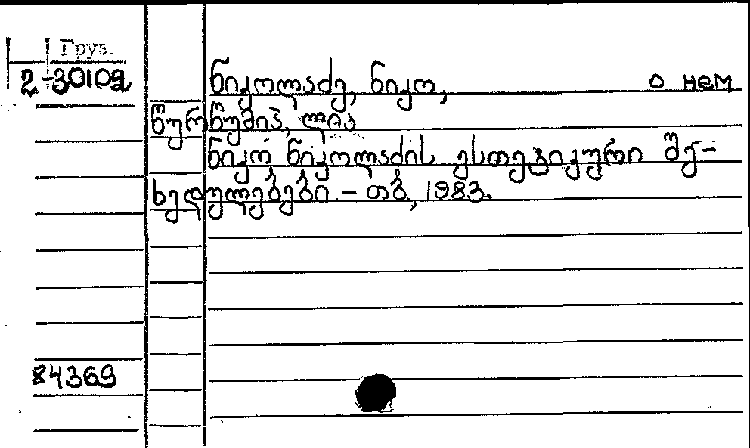 Груз.
2-30109
ნიკოლაძე, ნიკო, о нем
წურწუმია, ლია
ნიკო ნიკოლაძის ესთეტიკური შე-
ხედულებები – თბ, 1983.
84369